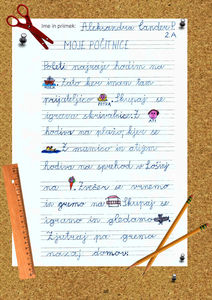 Ime in priimek: Aleksandra Čander P.
2.A
MOJE POČITNICE
Poleti najraje hodim na
. Zato ker imam tam
prijateljico . Skupaj se
PETRA
igrava skrivalnice. Z
hodiva na plažo, kjer se
. Z mamico in atijem
hodiva na sprehod v Lošinj
na . Zvečer se vrnemo
in gremo na . Skupaj se
igramo in gledamo .
Zjutraj pa gremo
nazaj domov.